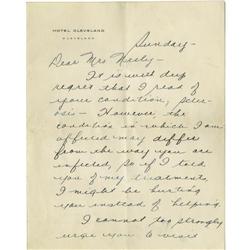 HOTEL CLEVELAND
CLEVELAND
Sunday-
Dear Mrs
It is with deep
regret that I read of
your condition, scler-
osis - However the
condition in which I am
affected may differ
from the way you are
infected, so if I told
you of my treatment,
I might be hurting
you instead of helping.
I cannot too strongly
urge you to visit